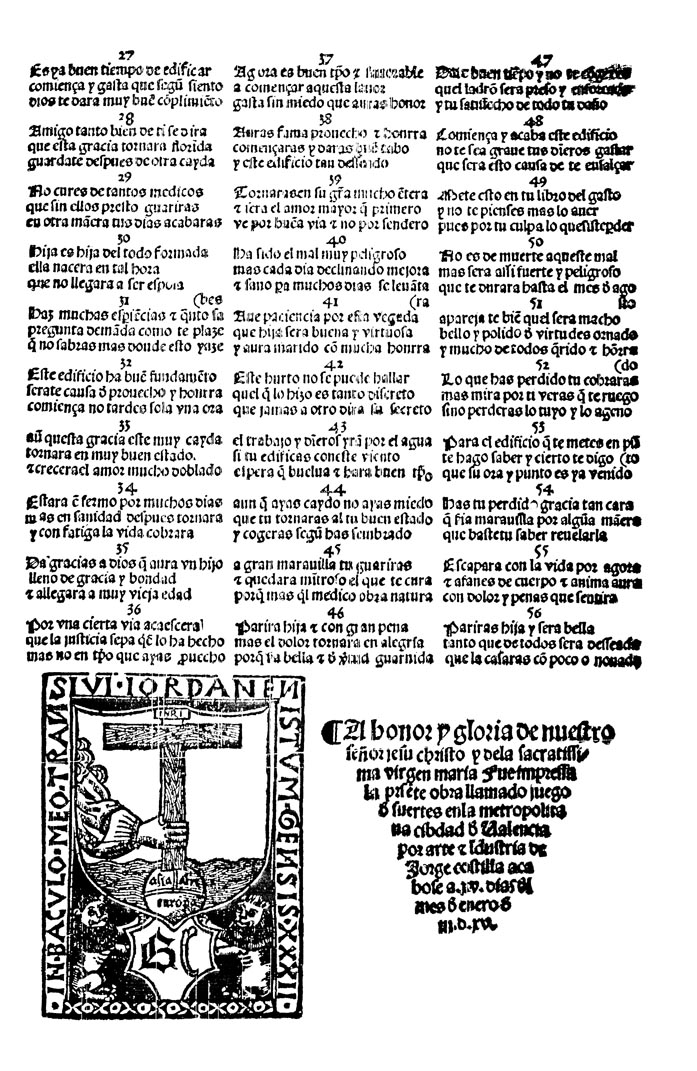 27
Es ya buen tiempo de edificar
comiença y gasta que segũ siento
dios te dara muy buẽ cõplimiẽto
28
Amigo tanto bien de ti se dira
que esta gracia tornara florida
guardate despues de otra cayda
29
No cures de tantos medicos
que sin ellos presto guariras
en otra mãera tus dias acabaras
30
Hija es hija del todo formada
ella nacera en tal hora
que no llegara a ser esposa
31 (bes
Haz muchas espiẽcias ⁊ q̃nto sa
pregunta demãda como te plaze
q̃ no sabras mas donde esto yaze
32
Este edificio ha buẽ fundamẽto
serate causa õ prouecho y honrra
comiença no tardes sola vna ora
33
aũ questa gracia este muy cayda
tornara en muy buen estado.
⁊ crecera el amor mucho doblado
34
Estara ẽfermo por muchos dias
mas en sanidad despues tornara
y con fatiga la vida cobrara
35
Da gracias a dios q̃ aura vn hijo
lleno de gracia y bondad
⁊ allegara a muy vieja edad
36
Por vna cierta via acaescera
que la justicia sepa q̃ẽ lo ha hecho
mas no en tp̃o que ayas ꝓuecho
37
Agora es buen tp̃o ⁊ fauorable
a començar aquesta lauor
gasta sin miedo que auras honor
38
Auras fama prouecho ⁊ honrra
començaras y daras que cabo
y este edificio tan desseado
39
Tornarasen su gr̃a mucho ẽtera
⁊ sera el amor mayor q̃ primero
ve por buẽa via ⁊ no por sendero
40
Ha sido el mal muy peligroso
mas cada dia declinando mejora
⁊ sano pa muchos dias se leuãta
41 (ra
Aue paciencia por esta vegeda
que hija sera buena y virtuosa
y aura marido cõ mucha honrra
42
Este hurto no se puede hallar
quel q̃ lo hizo es tanto discreto
que jamas a otro dira su secreto
43
el trabajo y dĩeros yrã por el agua
si tu edificas con este viento
espera q̃ buelua ⁊ hara buen tp̃o
44
aun q̃ ayas caydo no ayas miedo
que tu tornaras al tu buen estado
y cogeras segũ has sembrado
45
a gran marauilla tu guariras
⁊ quedara mĩtroso el que te cura
porq̃ mas q̃l medico obra natura
46
Parira hija ⁊ con gran pena
mas el dolor tornara en alegria
porq̃ sa bella ⁊ õ guarnida
47
buen tiẽpo y no te
quel ladrõ sera preso y enforcado
y tu satisfecho de todo tu daño
48
Comiença y acaba este edificio
no te sea graue tus dĩeros gastar
que sera esto causa de te ensalçar
49
Mete esto en tu libro del gasto
y no te pienses mas lo auer
pues por tu culpa lo quesiste pder
50
No es de muerte aqueste mal
mas sera assi fuerte y peligroso
que te durara hasta el mes õ ago
51 sto
apareja te biẽ quel sera macho
bello y polido õ virtudes ornado
y mucho de todos q̃rido ⁊ hõrra
52 (do
Lo que has perdido tu cobraras
mas mira por ti veras q̃ te ruego
sino perderas lo tuyo y lo ageno
53
Para el edificio q̃ te metes en pũ
te hago saber y cierto te digo (to
que su ora y punto es ya venido
54
Has tu perdido gracia tan cara
q̃ sia marauilla por algũa mãera
que bastetu saber reuelarla
55
Escapara con la vida por agora
⁊ afanes de cuerpo ⁊ anima aura
con dolor y penas que sentira
56
Pariras hija y sera bella
tanto que de todos sera desseada
que la casaras cõ poco o nonada
IN·BACVLO·MEO·TRANSIVI·IORDANEN ISTVM·GENSIS·XXXII
INRI
asia Afri
europa
¶ A honor y gloria de nuestro
señor jesu christo y dela sacratissi
ma virgen maria Fue impressa
la prsẽte obra llamado juego
õ suertes enla metropolita
na cibdad õ Ualencia
por arte ⁊ ĩdustria de
Jorge costilla aca
bose a.xv. dias ðl
mes õ enero õ
m.d.xv.